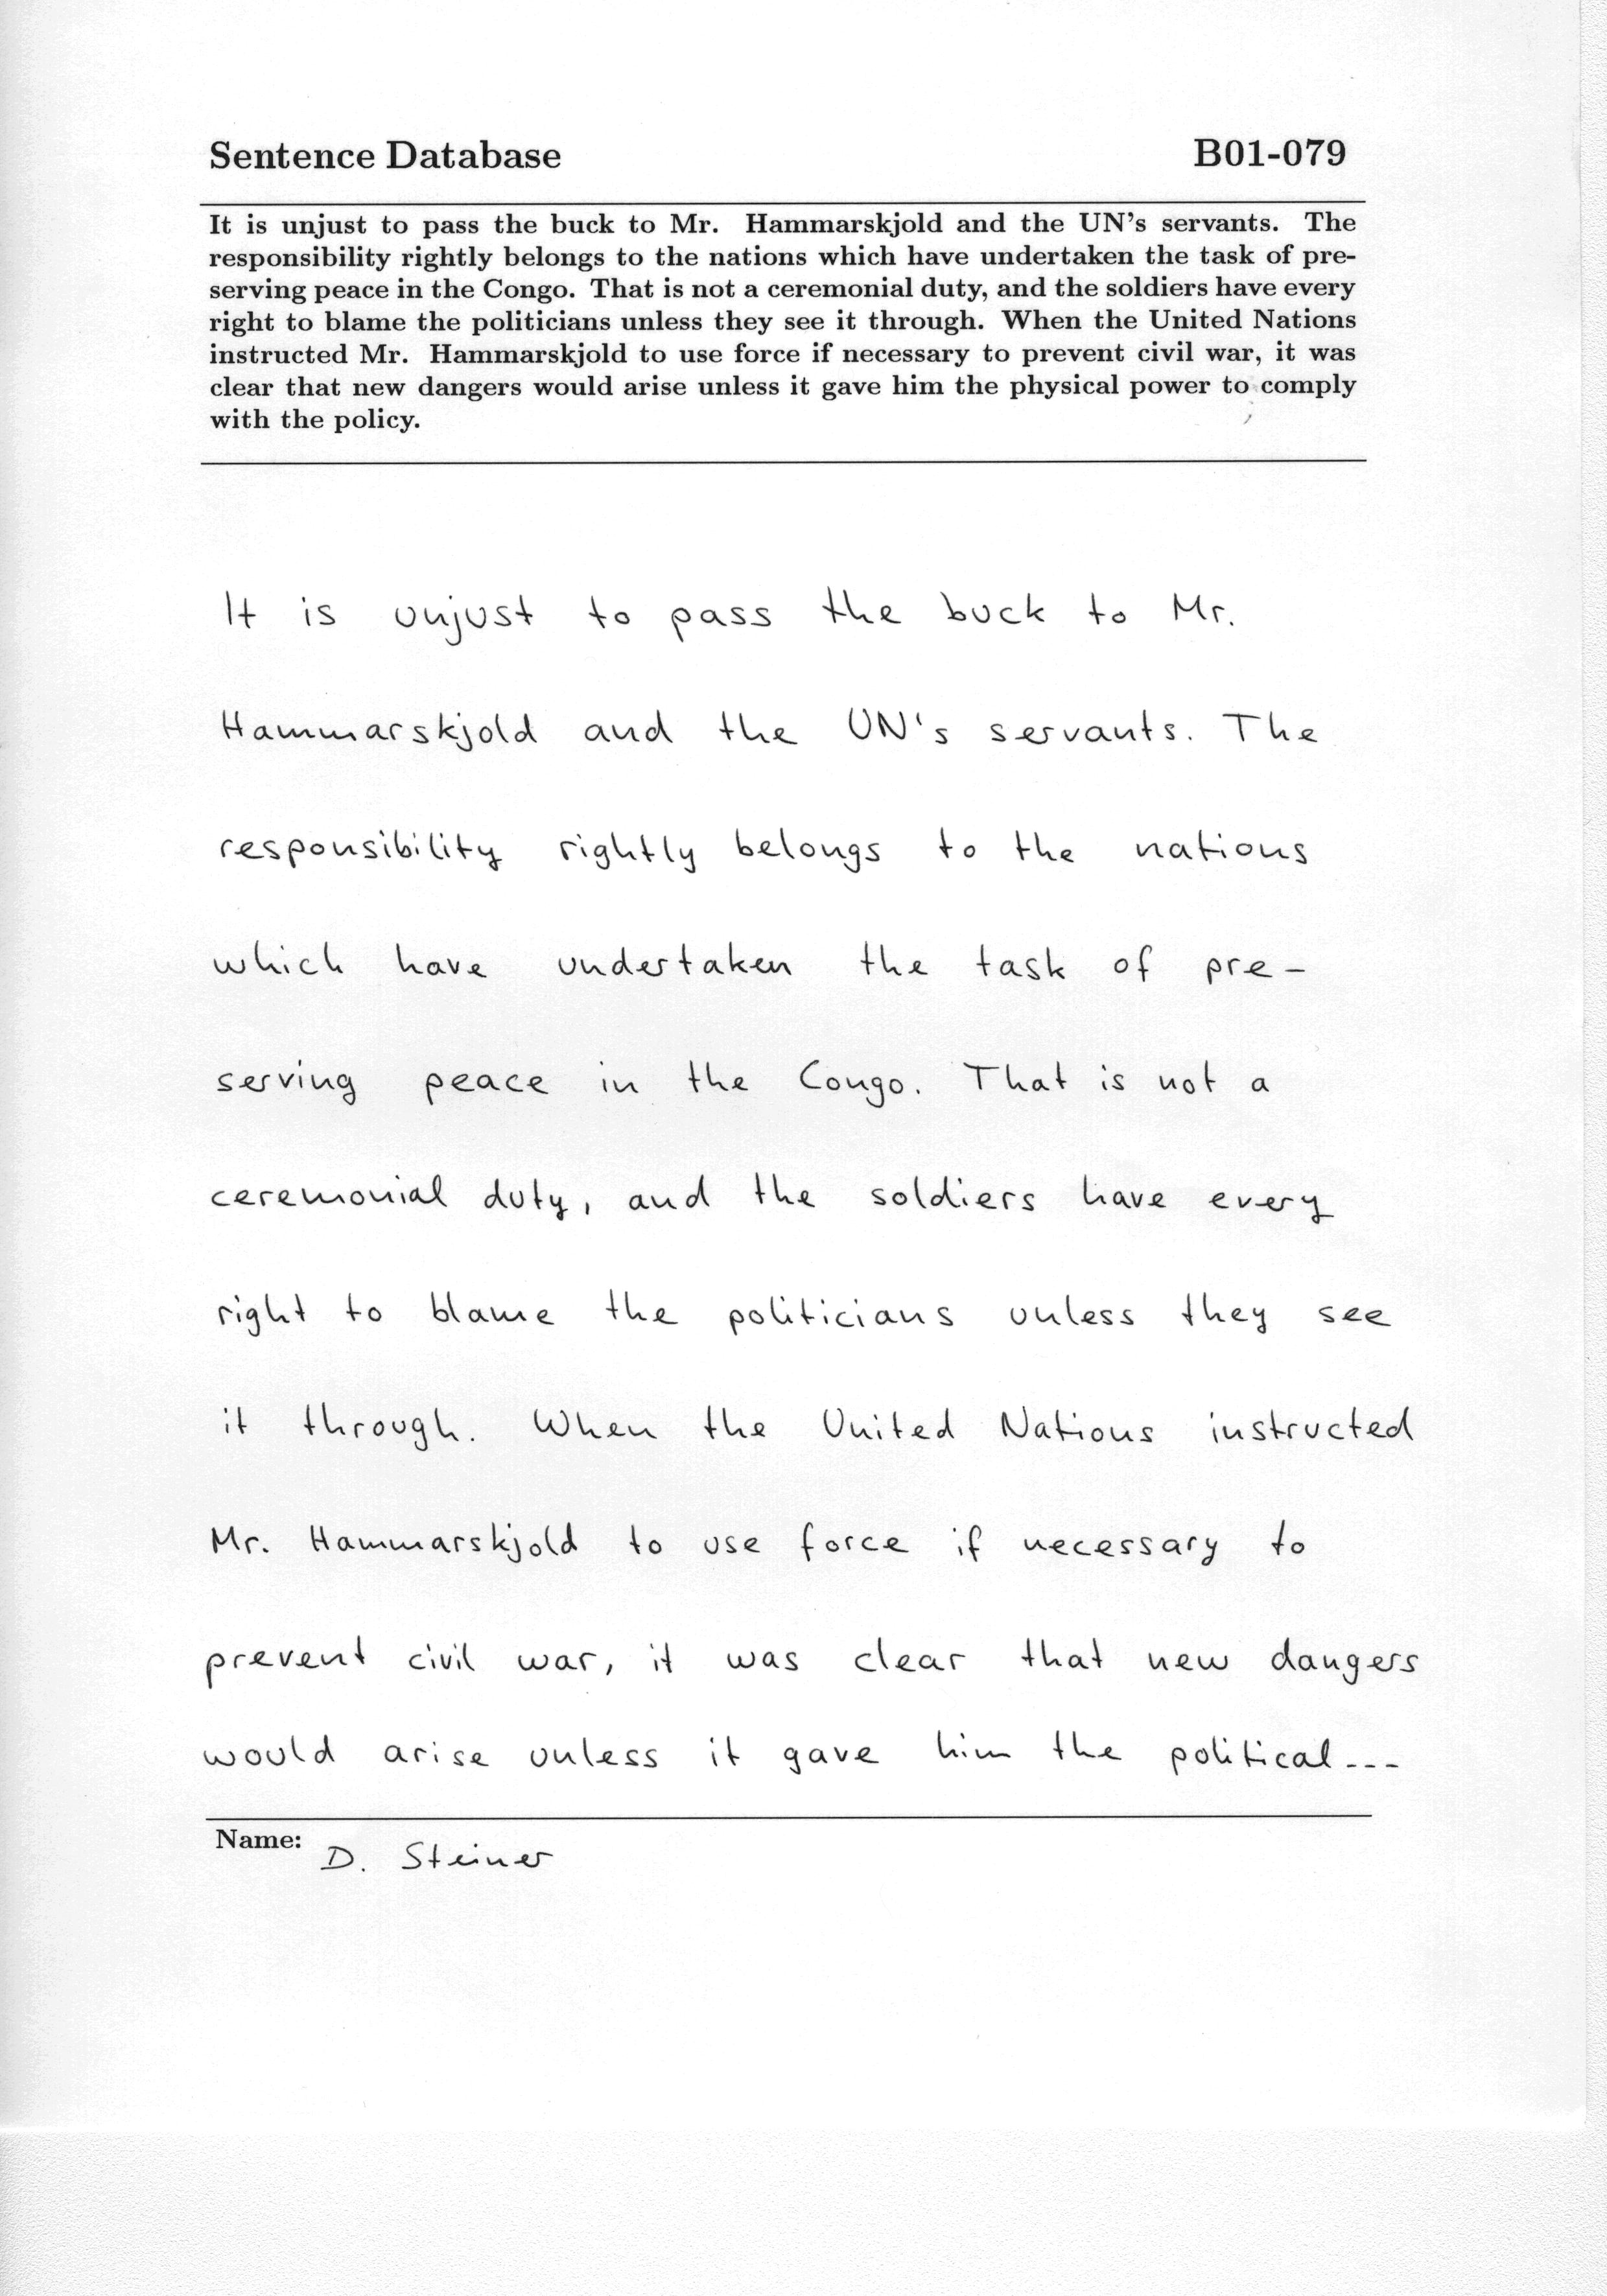 Sentence Database B01-079
It is unjust to pass the buck to Mr. Hammarskjold and the UN's servants. The
responsibility rightly belongs to the nations which have undertaken the task of pre-
serving peace in the Congo. That is not a ceremonial duty, and the soldiers have every
right to blame the politicians unless they see it through. When the United Nations
instructed Mr. Hammarskjold to use force if necessary to prevent civil war, it was
clear that new dangers would arise unless it gave him the physical power to comply
with the policy.
It is unjust to pass the buck to Mr.
Hammarskjold and the UN's servants. The
responsibility rightly belongs to the nations
which have undertaken the task of pre-
serving peace in the Congo. That is not a
ceremonial duty, and the soldiers have every
right to blame the politicians unless they see
it through. When the United Nations instructed
Mr. Hammarskjold to use force if necessary to
prevent civil war, it was clear that new dangers
would arise unless it gave him the political---
Name: D. Steiner